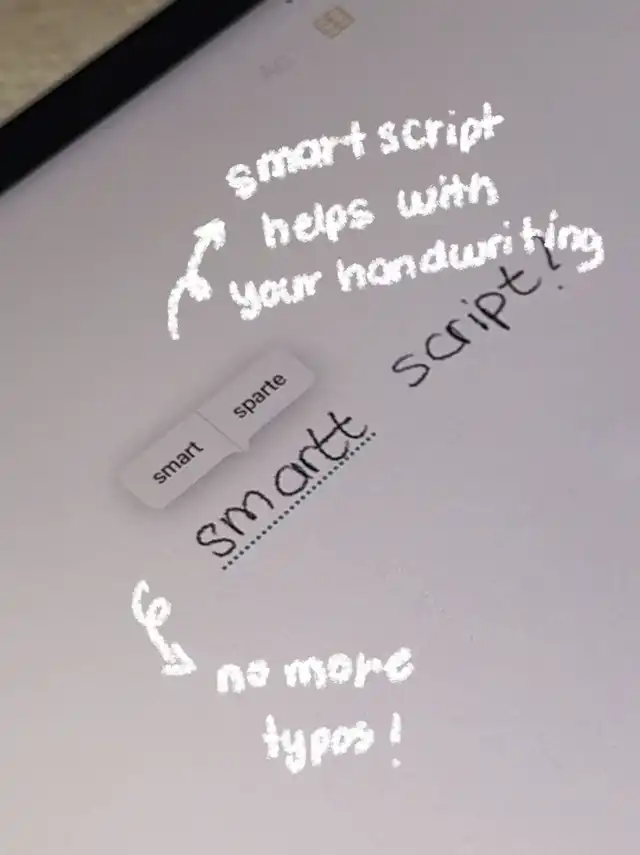 smart script
helps with
your handwriting
script!
smart sparte
smartt
no more
typos!